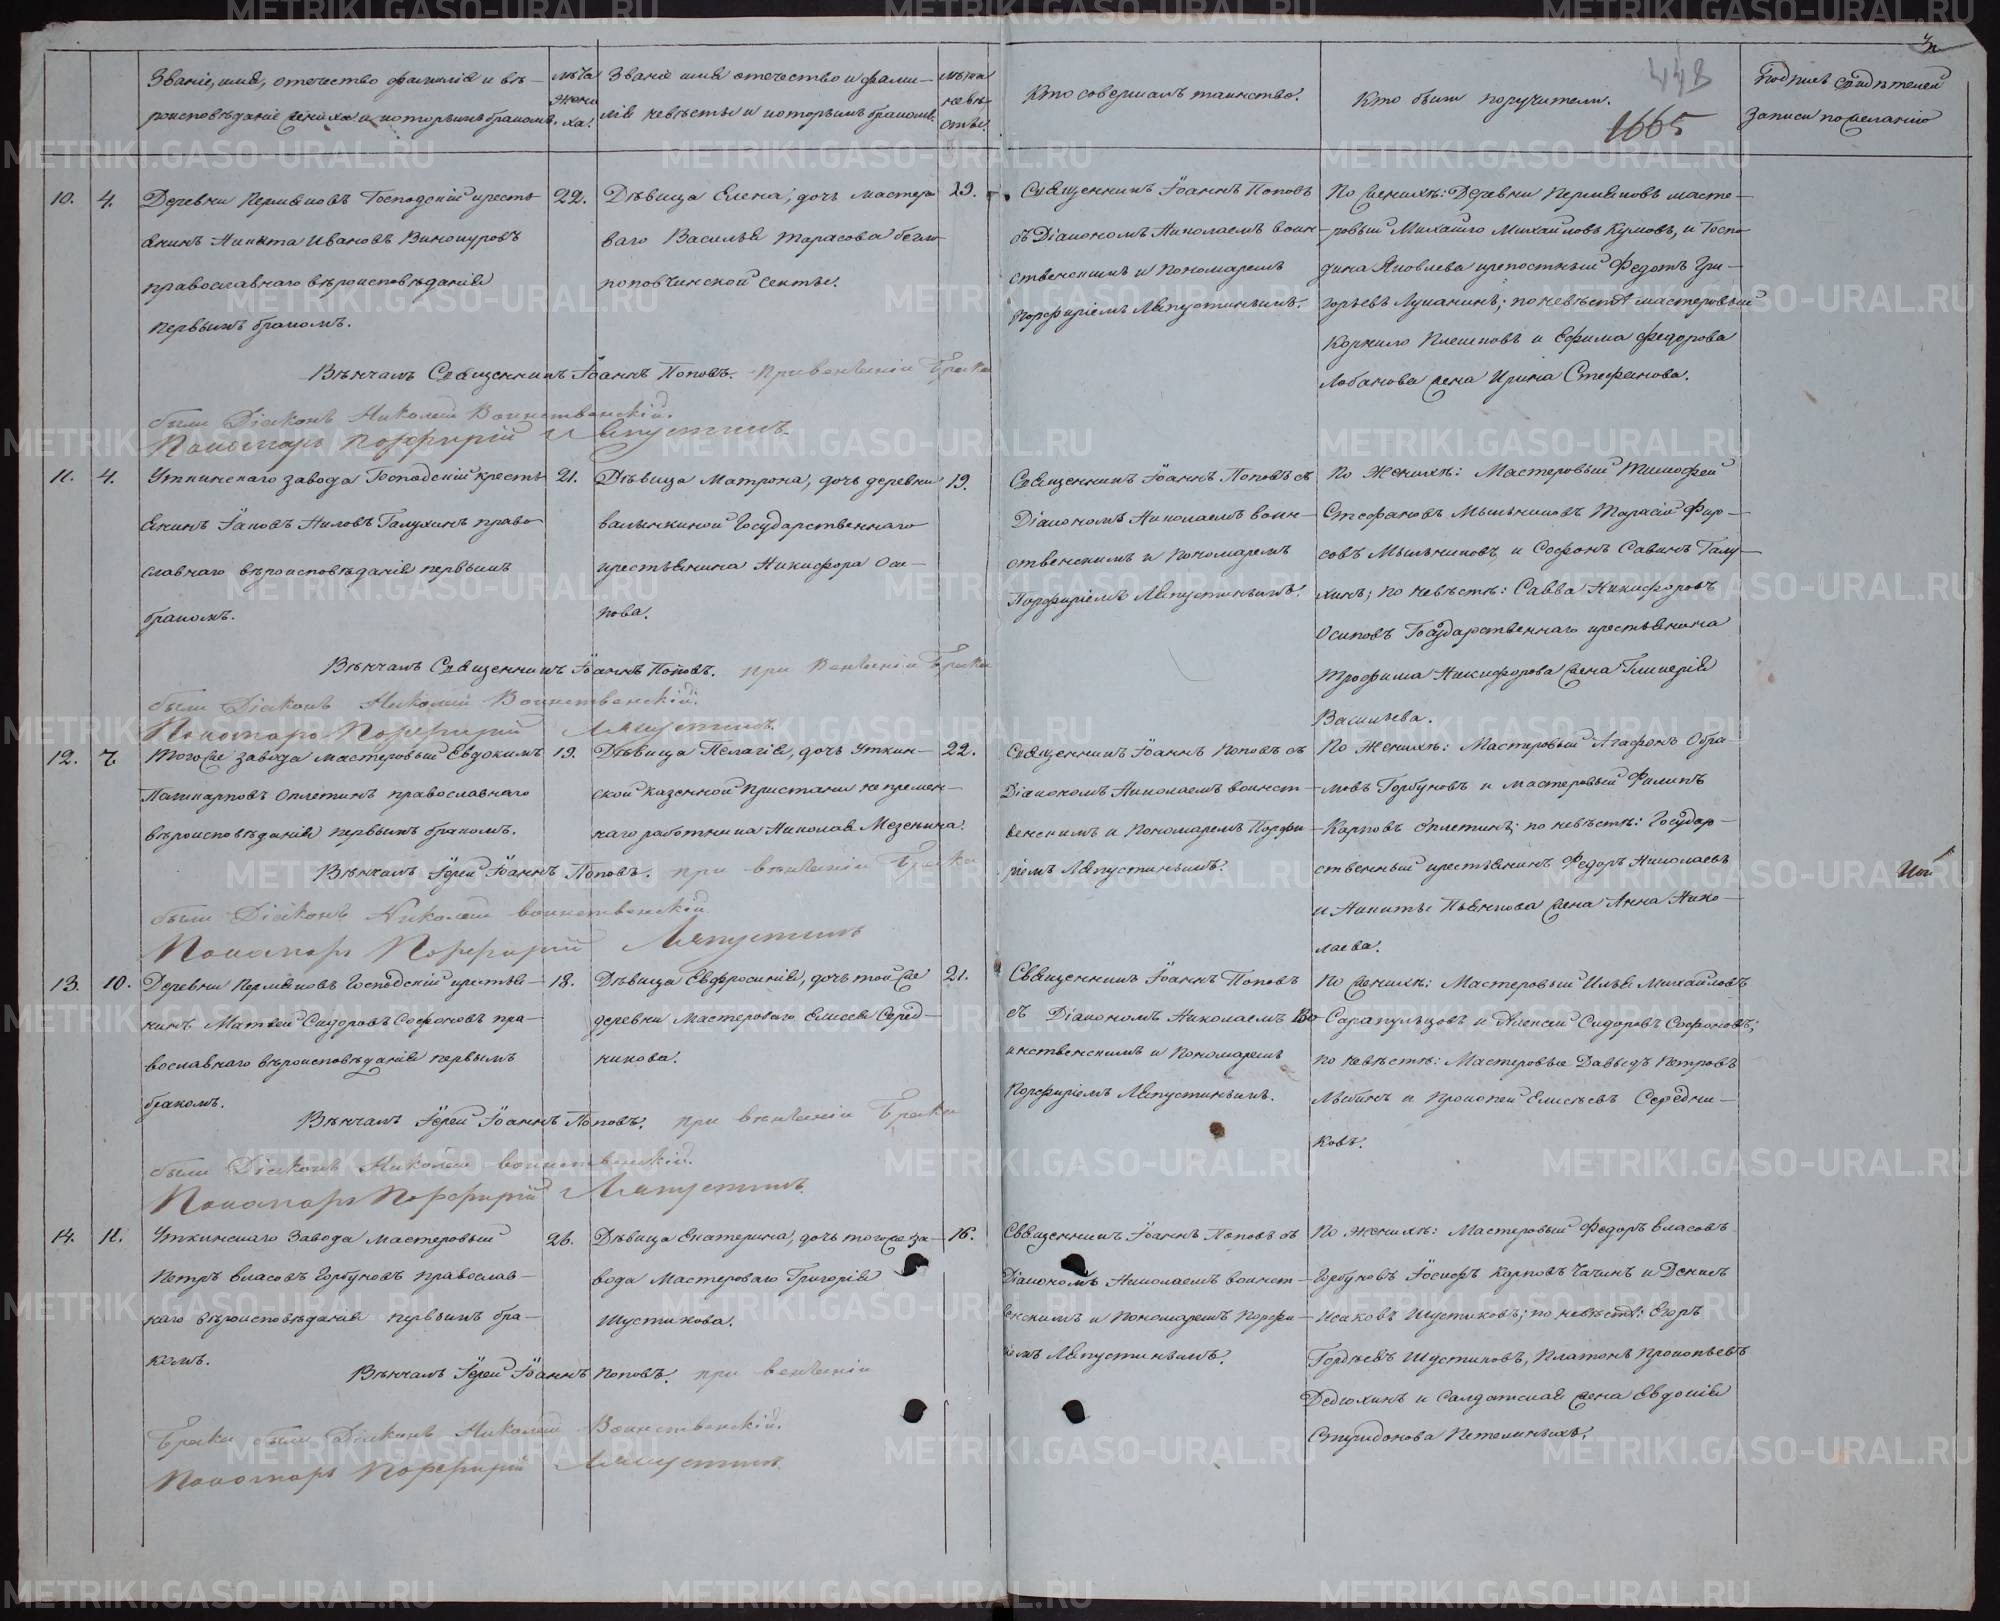 Званіе, имя, отечество фамилія и вѣ-
роисповѣданіе жениха и которымъ бракомъ.
лѣта
жени
ха.
Званіе имя отечество и фами-
лія невѣсты и которымъ бракомъ.
лѣта
невѣ
сты.
Кто совершалъ таинство.
Кто были поручители.
448
1665
Подпись свидѣтелей
записи по желанію
10.
4.
Деревни Пермяковъ Господскій кресть-
янинъ Никита Ивановъ Винокуровъ
православнаго вѣроисповѣданія
первымъ бракомъ.
22.
Дѣвица Елена, дочь мастеро
ваго Василья Тарасова бѣгло
поповчинской секты.
19.
Священникъ Іоаннъ Поповъ
съ Діакономъ Николаемъ Воин-
ственскимъ и Пономаремъ
Порфиріемъ Ляпустинымъ.
По женихѣ: Деревни Пермяковъ масте-
ровый Михайло Михайловъ Кумовъ, и Госпо
дина Яковлева крепостный Федотъ Гри-
горьевъ Луканинъ; по невѣстѣ мастеровый
Корнило Плешковъ и Ефима Федорова
Лобанова жена Ирина Стефанова.
Вѣнчалъ Священникъ Іоаннъ Поповъ. При венчаніи Брака
были Діаконъ Николай Воинственскій.
Пономарь Порфирій Ляпустинъ.
11.
4.
Уткинскаго завода Господскій кресть
янинъ Іаковъ Ниловъ Галухинъ право-
славнаго вѣроисповѣданія первымъ
бракомъ.
21.
Дѣвица Матрона, дочь деревни
Волынкиной Государственнаго
крестьянина Никифора Оси-
пова.
19.
Священникъ Іоаннъ Поповъ съ
Діакономъ Николаемъ Воин-
ственскимъ и Пономаремъ
Порфиріемъ Ляпустинымъ.
По Женихѣ: Мастеровый Тимофей
Стефановъ Мыльниковъ Тарасій Фир-
совъ Мыльниковъ, и Софонъ Савинъ Галу-
хинъ; по невѣстѣ: Савва Никифоровъ
Осиповъ Государственнаго крестьянина
Трофима Никифорова жена Гликерія
Васильева.
Вѣнчалъ Священникъ Іоаннъ Поповъ. при Венчаніи Брака
были Діаконъ Николай Воинственскій.
Пономарь Порфирій Ляпустинъ.
12.
7
Тогоже завода мастеровый Евдокимъ
Поликарповъ Оплетинъ православнаго
вѣроисповѣданія первымъ бракомъ.
19.
Дѣвица Пелагія, дочь Уткин-
ской казенной Пристани непремен-
наго работника Николая Мезенина.
22.
Священникъ Іоаннъ Поповъ съ
Діакономъ Николаемъ Воинст-
венскимъ и Пономаремъ Порфи-
ріемъ Ляпустинымъ.
По Женихѣ: Мастеровый Агафонъ Обра-
мовъ Горбуновъ и мастеровый Филипъ
Карповъ Оплетинъ; по невѣстѣ: Государ-
ственный крестьянинъ Федоръ Николаевъ
и Никиты Пьянкова жена Анна Нико-
лаева.
Вѣнчалъ Іерей Іоаннъ Поповъ. при вѣнчаніи Брака
были Діаконъ Николай Воинственскій
Пономарь Порфирій Ляпустинъ
13.
10.
Деревни Пермяковъ Господскій крестья-
нинъ Матвей Сидоровъ Софоновъ пра-
вославнаго вѣроисповѣданія первымъ
бракомъ.
18.
Дѣвица Евфросинія, дочь той же
деревни Мастероваго Елисея Серед-
никова.
21.
Священникъ Іоаннъ Поповъ
съ Діакономъ Николаемъ Во-
инственскимъ и Пономаремъ
Порфиріемъ Ляпустинымъ.
По женихѣ: Мастеровый Илья Михайловъ
Сарапульцовъ и Алексей Сидоровъ Софоновъ;
по невѣстѣ: Мастеровые Давыдъ Петровъ
Лыбинъ и Прокопей Елисѣевъ Середни-
ковъ.
Вѣнчалъ Іерей Іоаннъ Поповъ. при вѣнчаніи Брака
были Діаконъ Николай Воинственскій.
Пономарь Порфирій Ляпустинъ.
14.
11.
Уткинскаго Завода Мастеровый
Петръ Власовъ Горбуновъ православ-
наго вѣроисповѣданія первымъ бра-
комъ.
26.
Дѣвица Екатерина, дочь тогоже за-
вода Мастероваго Григорія
Шустикова.
16.
Священникъ Іоаннъ Поповъ съ
Діакономъ Николаемъ Воинст-
венскимъ и Пономаремъ Порфи-
ріемъ Ляпустинымъ.
По Женихѣ: Мастеровый Федоръ Власовъ
Горбуновъ Іосифъ Карповъ Чачинъ и Денисъ
Исаковъ Шустиковъ; по невѣстѣ: Егоръ
Гордѣевъ Шустиковъ, Платонъ Прокопьевъ
Дедюхинъ и Салдатская жена Евдокія
Спиридонова Петелиныхъ.
Вѣнчалъ Іерей Іоаннъ Поповъ. при венчаніи
Брака были Діаконъ Николай Воинственскій.
Пономарь Порфирій Ляпустинъ.
METRIKI.GASO-URAL.RU